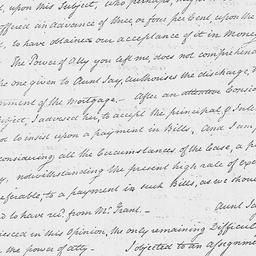 upon this Subject, who perhaps, might
offered an advance of three or four per Cent, upon the
to have obtained our acceptance of it in Money
The Power of Atty left me, does not comprehend
the one given to Aunt Jay, authorises the discharge,
of the Mortgage.— After an attentive Consid
I advised her, to accept the principal, & Inte
not to insist upon a payment in Bills, And I am
considering all the Circumstances of the Case, a p
notwithstanding the present high rate of exc
preferable, to a payment in such Bills, as we shou
to have recd. from Mr. Grant.— Aunt Ja
in this Opinion, the only remaining Difficult
the power of atty.— I objected to an assignm